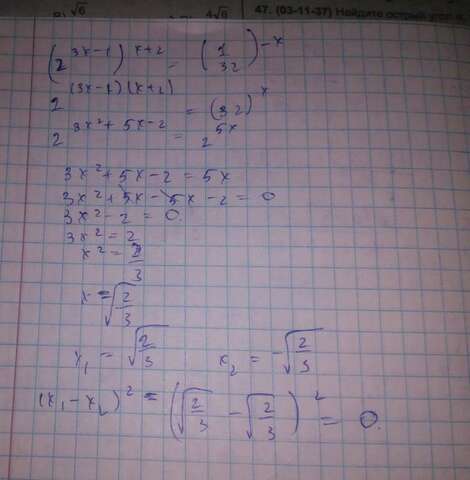 √6 4√6 47. (03-11-37) Найдите острый угол
(2^(3x-1))^(x+2) = (1/32)^(-x)
2^((3x-1)(x+2)) = (32)^x
2^(3x²+5x-2) = 2^(5x)
3x²+5x-2=5x
3x²+5x-5x-2=0
3x²-2=0.
3x²=2
x²=2/3
x=√(2/3)
x₁=√(2/3) x₂=-√(2/3)
(x₁-x₂)²=(√(2/3)-√(2/3))²=0.